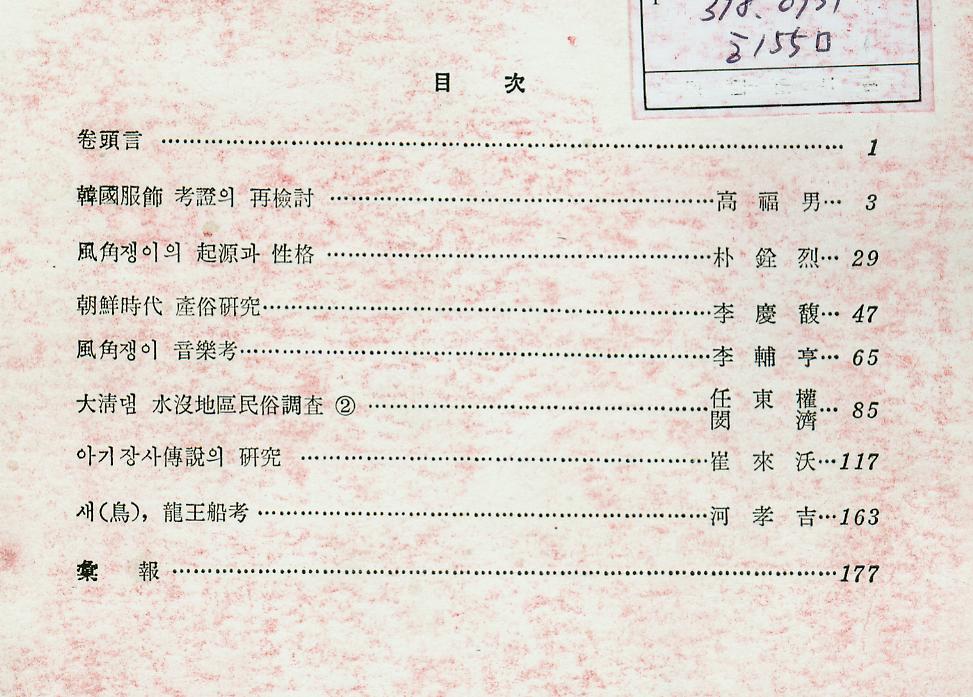 目 次
卷頭言 …… 1
韓國服飾 考證의 再檢討 …… 高 福 男… 3
風角쟁이의 起源과 性格 …… 朴 銓 烈… 29
朝鮮時代 產俗硏究…… 李 慶 馥… 47
風角쟁이 音樂考…… 李 輔 亨… 65
大淸댐 水沒地區民俗調査 ② …… 任 東 權… 85
閔 濟
아기장사傳說의 硏究 …… 崔 來 沃…117
새(鳥), 龍王船考 …… 河 孝 吉…163
彙 報 …… 177